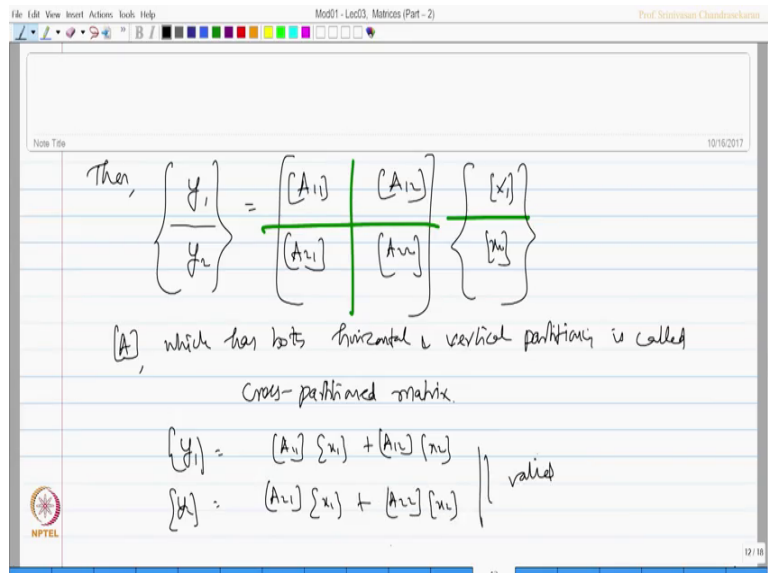 File Edit View Insert Actions Tools Help
Mod01 - Lec03, Matrices (Part – 2)
Prof. Srinivasan Chandrasekaran
B I
Note Title
10/16/2017
Then, { y1 / y2 } = [ [A11] [A12] ] { [x1] }
[ [A21] [A22] ] { [x2] }
[A], which has both horizontal & vertical partitioning is called
cross-partitioned matrix.
{y1} = [A11] {x1} + [A12] {x2}
{y2} = [A21] {x1} + [A22] {x2} valid
NPTEL
12 / 18